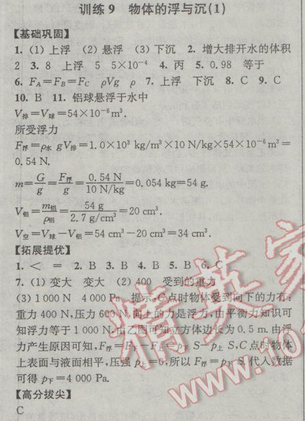 训练9 物体的浮与沉(1)
【基础巩固】
1. (1) 上浮 (2) 悬浮 (3) 下沉 2. 增大排开水的体积
2 3. 8 上浮 5 5×10⁻⁴ 4. 小 5. 0.98 等于
6. F_A=F_B=F_C ρVg ρ 7. 上浮 下沉 8. C 9. C
10. B 11. 铝球悬浮于水中
V排=V球=54×10⁻⁶ m³.
所受浮力
F浮=ρ水 gV排=1.0×10³ kg/m³×10 N/kg×54×10⁻⁶ m³=
0.54 N.
m=G/g=F浮/g=0.54 N/10 N/kg=0.054 kg=54 g.
V铝=m铝/ρ铝=54 g/2.7 g/cm³=20 cm³.
V空=V球-V铝=54 cm³-20 cm³=34 cm³.
【拓展提优】
1. < = 2. B 3. B 4. B 5. B 6. C
7. (1) 变大 变大 (2) 400 受到的重力
(3) 1 000 N 4 000 Pa. 提示:C点时物体受到向下的力有:
重力400 N,压力600 向上的力是浮力,由平衡力知识可
知浮力等于1 000 N,由乙图可知立方体边长为0.5 m.由浮
力产生原因可知,F浮=F下-F上=p下S-p上S,C点时物体
上表面与液面相平,压强p上=0,所以F浮=p下S,代入数据
可得p下=4 000 Pa.
【高分拔尖】
C
精英家